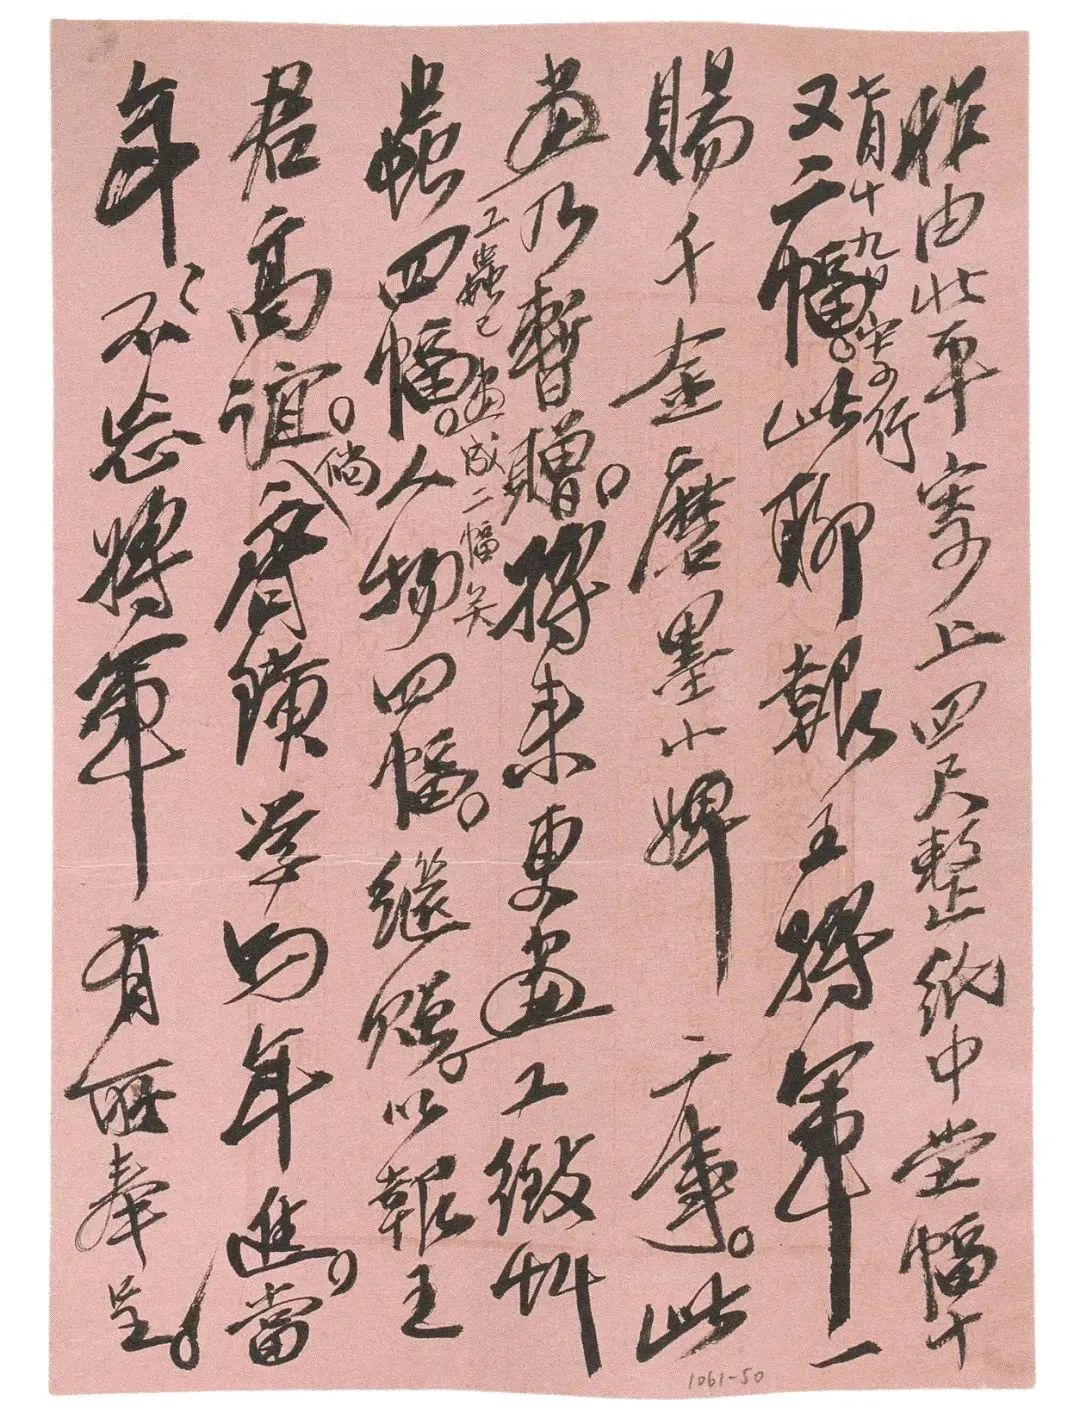 昨由北平寄上四尺整纸中堂幅十
七月十九日寄行
又二幅。此聊報王將軍一
賜千金磨墨小婢一事。此
畫乃暫贈。將來更畫工緻艸
工蟲已畫成二幅矣
蟲四幅。人物四幅。繼贈。以報王
君高誼。倘齊璜學與年進。當
年年不忘將軍有所奉呈。
1061-50